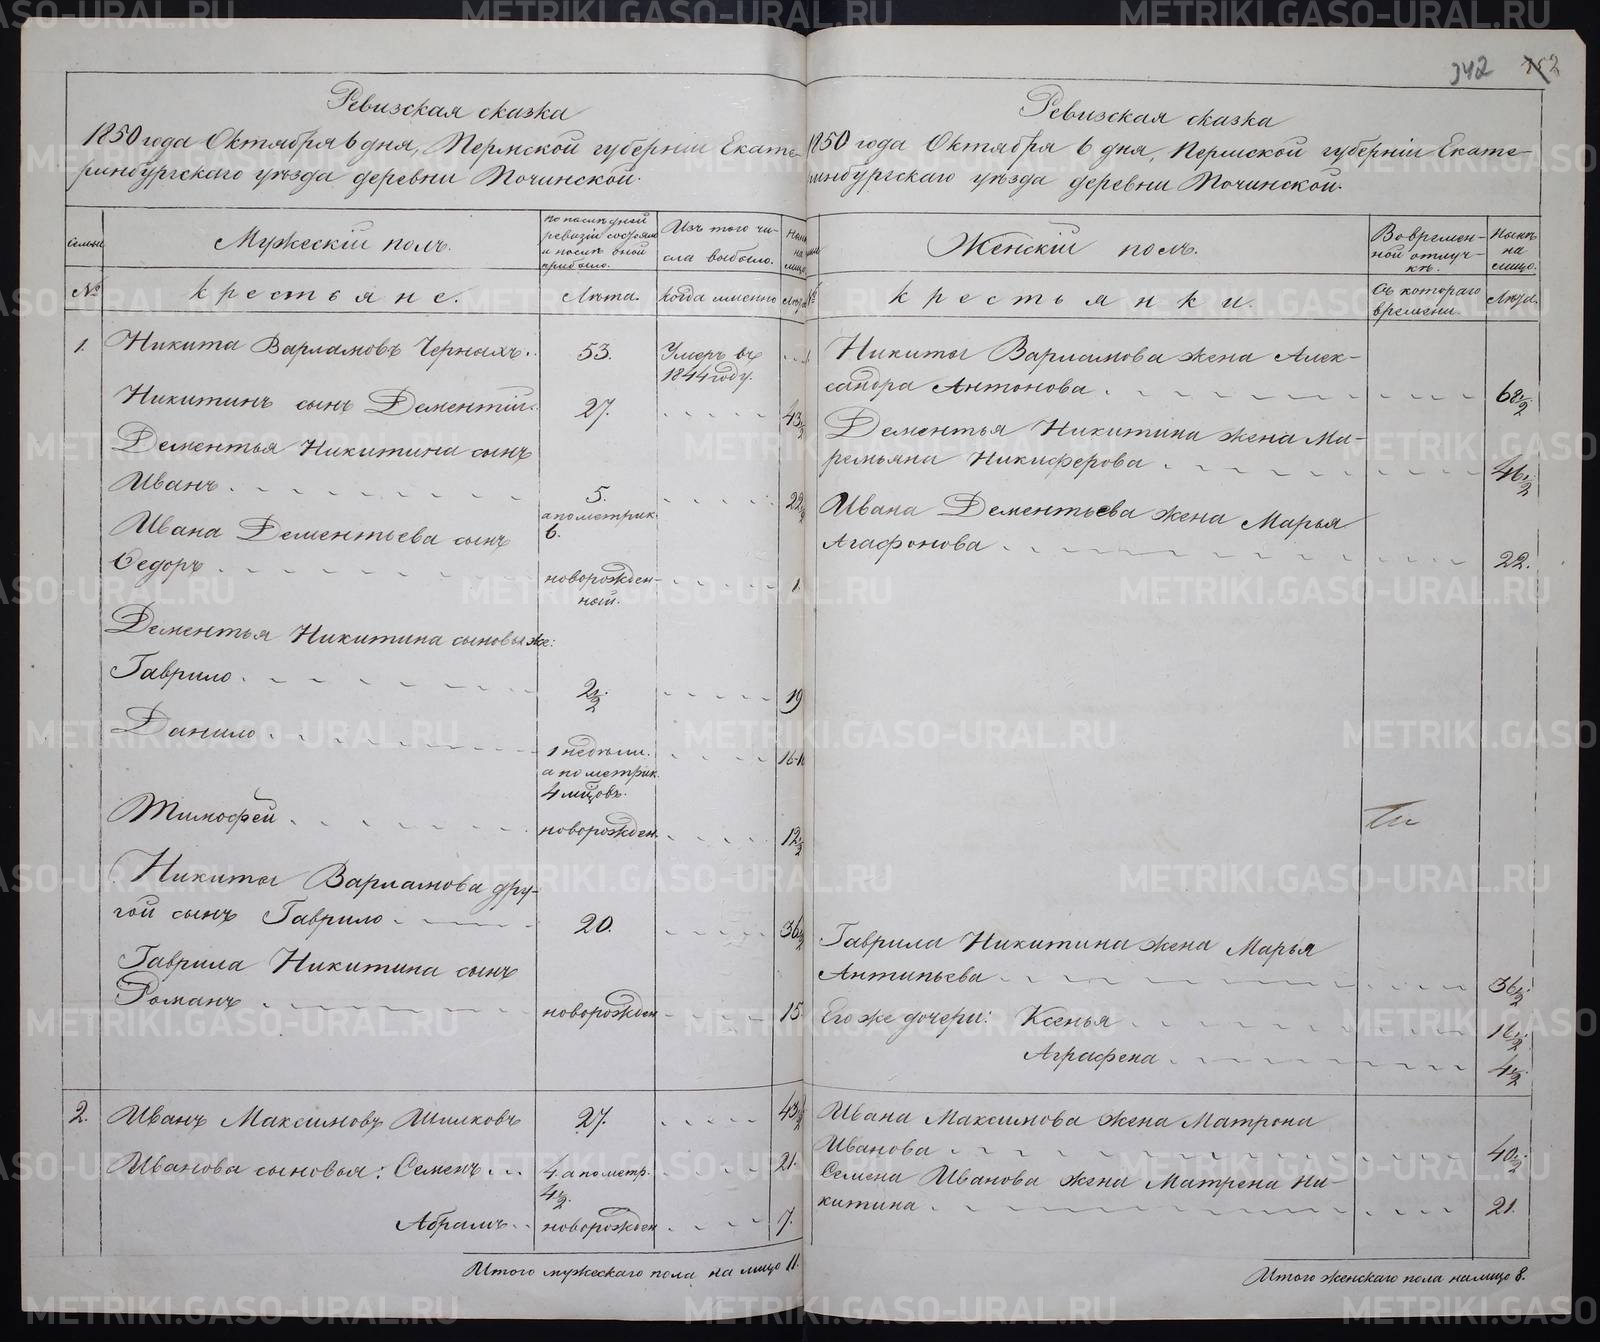 342 352
Ревизская сказка
1850 года Октября 6 дня, Пермской губерніи Екате-
ринбургскаго уѣзда деревни Починской.
Семьи
Мужескій полъ.
По послѣдней
ревизіи состояло
и послѣ оной
прибыло.
Изъ того чи-
сла выбыло.
Нынѣ
на
лицо.
№
Крестьяне.
Лѣта.
Когда именно
Лѣта
1.
Никита Варламовъ Черныхъ.
53.
Умеръ въ
1844 году.
Никитинъ сынъ Дементій.
27.
43½
Дементья Никитина сынъ
Иванъ.
5.
а по метрик.
6.
22½
Ивана Дементьева сынъ
Федоръ.
новорожден-
ный.
1.
Дементья Никитина сыновья же:
Гаврило.
2½.
19
Данило.
1 недѣли.
а по метрик.
4 мѣцовъ.
16
Тимофей.
новорожден.
12½
Никиты Варламова дру-
гой сынъ Гаврило.
20.
36½
Гаврила Никитина сынъ
Романъ
новорожден
15
2.
Иванъ Максимовъ Шилковъ
27.
43½
Иванова сыновья: Семенъ.
4. а по метр.
4½.
21.
Абрамъ.
новорожден
7.
Итого мужескаго пола на лицо 11.
Ревизская сказка
1850 года Октября 6 дня, Пермской губерніи Екате-
ринбургскаго уѣзда деревни Починской.
Женскій полъ.
Во времен-
ной отлуч-
кѣ.
Нынѣ
на
лицо.
№
Крестьянки.
Съ котораго
времени.
Лѣта.
1.
Никиты Варламова жена Алек-
сандра Антонова.
68½
Дементья Никитина жена Ма-
ремьяна Никиферова.
46½
Ивана Дементьева жена Марья
Агафонова.
22.
Гаврила Никитина жена Марья
Антипьева
36½.
Его же дочери: Ксенья
16½.
Аграфена.
4½.
Ивана Максимова жена Матрона
Иванова
40½.
Семена Иванова жена Матрена Ни-
китина.
21.
Итого женскаго пола на лицо 8.
METRIKI.GASO-URAL.RU